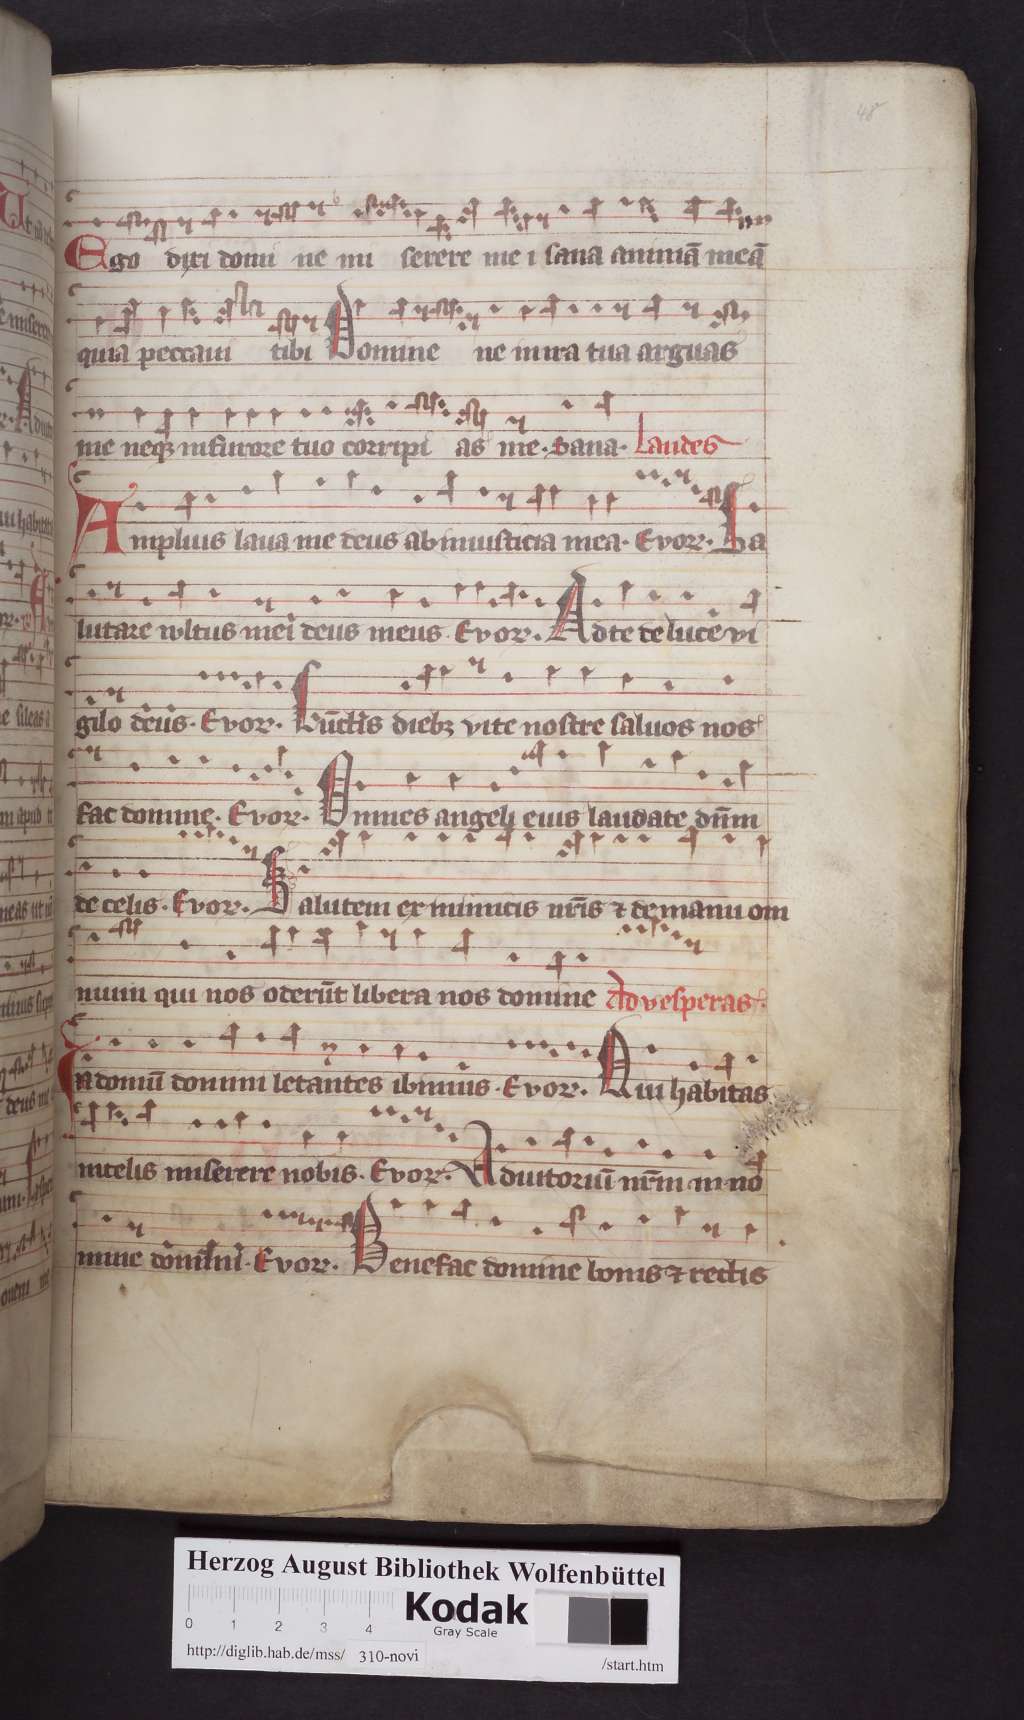 48
Ego dixi domi ne mi serere me i sana animā meā
quia peccaui tibi Domine ne in ira tua arguas
me neqꝫ in furore tuo corripi as me. Sana. Laudes
Amplius laua me deus ab iniusticia mea. Evoꝛ. Sa
lutare uultus mei deus meus. Evoꝛ. Ad te de luce vi
gilo deus. Evoꝛ. Cūctis diebꝫ vite nostre saluos nos
fac domine. Evoꝛ. Omnes angeli eius laudate dn̄m
de celis. Evoꝛ. Salutem ex inimicis nr̄is ⁊ de manu om
nium qui nos oderūt libera nos domine Ad vesperas.
In domū domini letantes ibimus. Evoꝛ. Qui habitas
in celis miserere nobis. Evoꝛ. Adiutoriū nr̄m in no
mine domini. Evoꝛ. Benefac domine bonis ⁊ rectis
Herzog August Bibliothek Wolfenbüttel
0 1 2 3 4
Kodak
Gray Scale
http://diglib.hab.de/mss/ 310-novi /start.htm